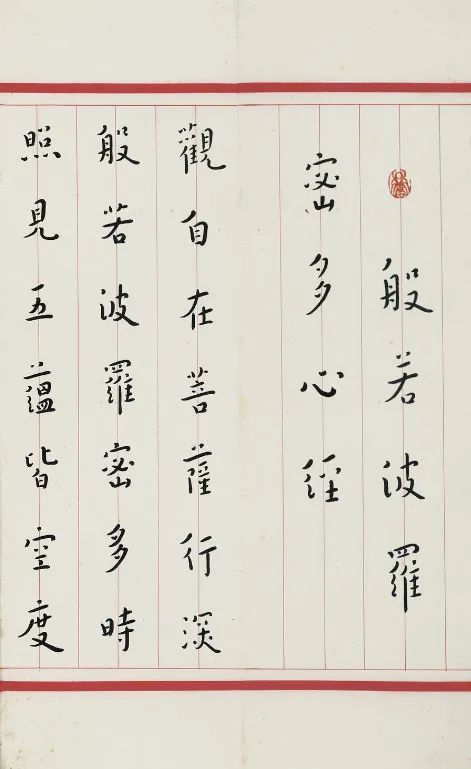 般若波羅
密多心経
觀自在菩薩行深
般若波羅密多時
照見五蘊皆空度